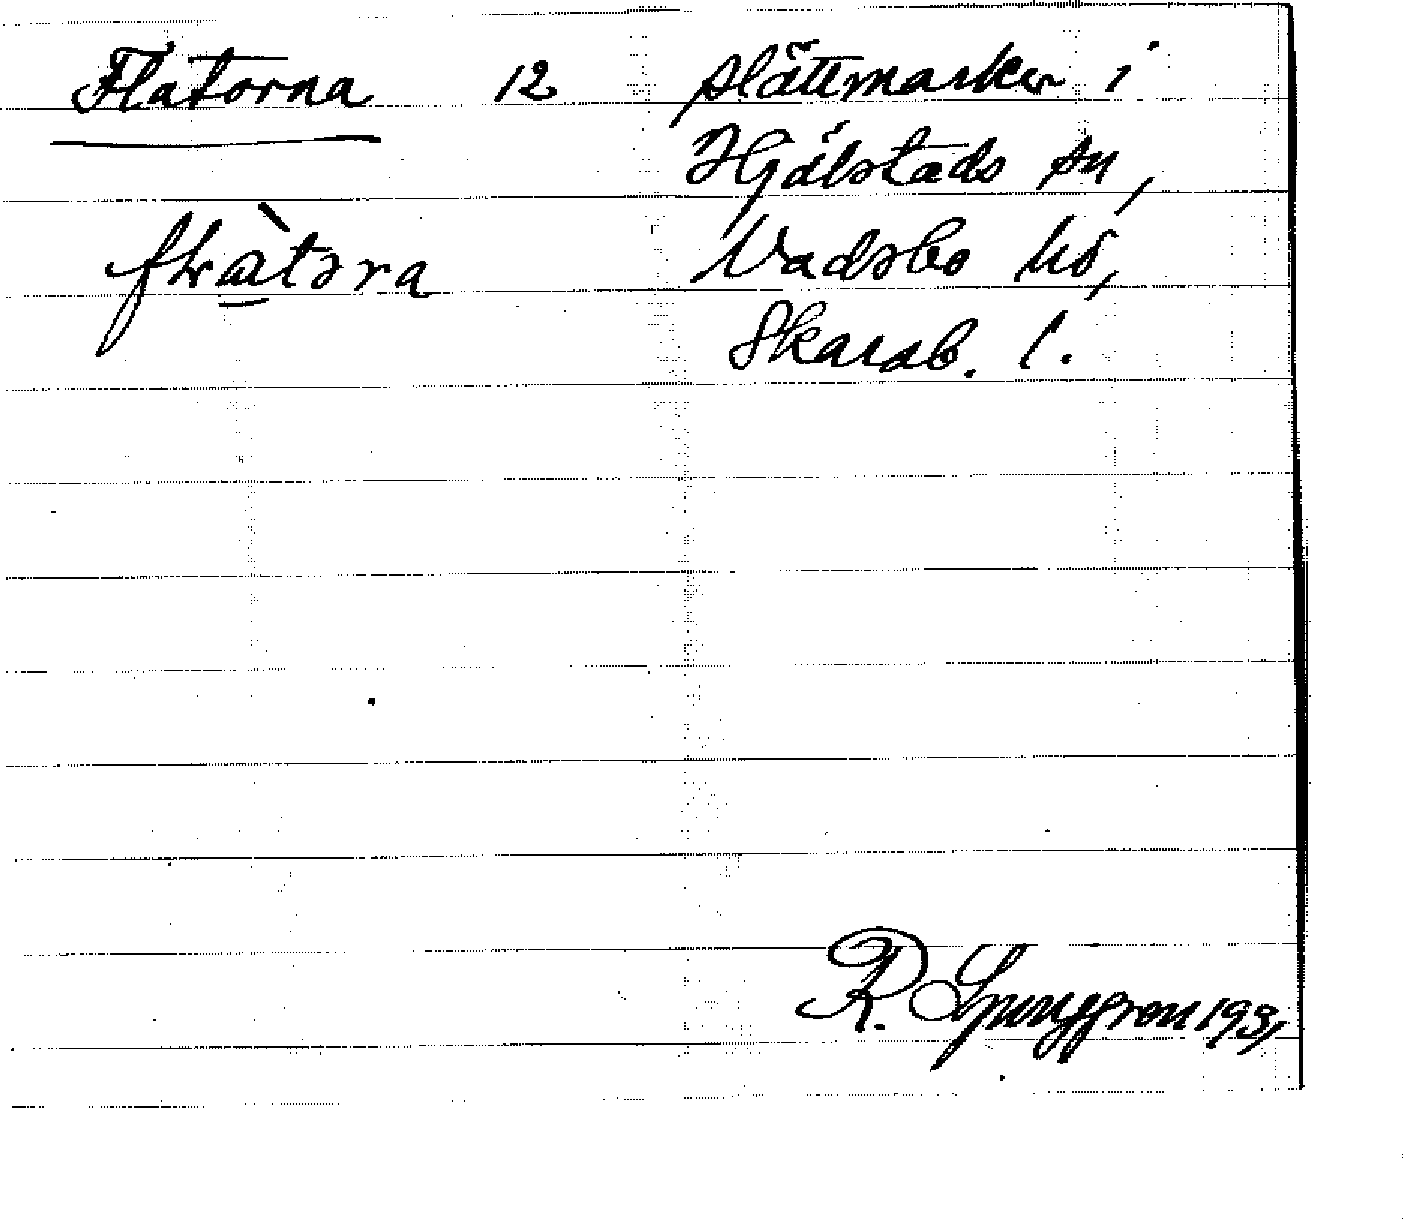 Flatorna 12 slättmarker i
Hjälstads sn,
flàtₔra Vadsbo hd,
Skarab. l.
R. Ljunggren 1931